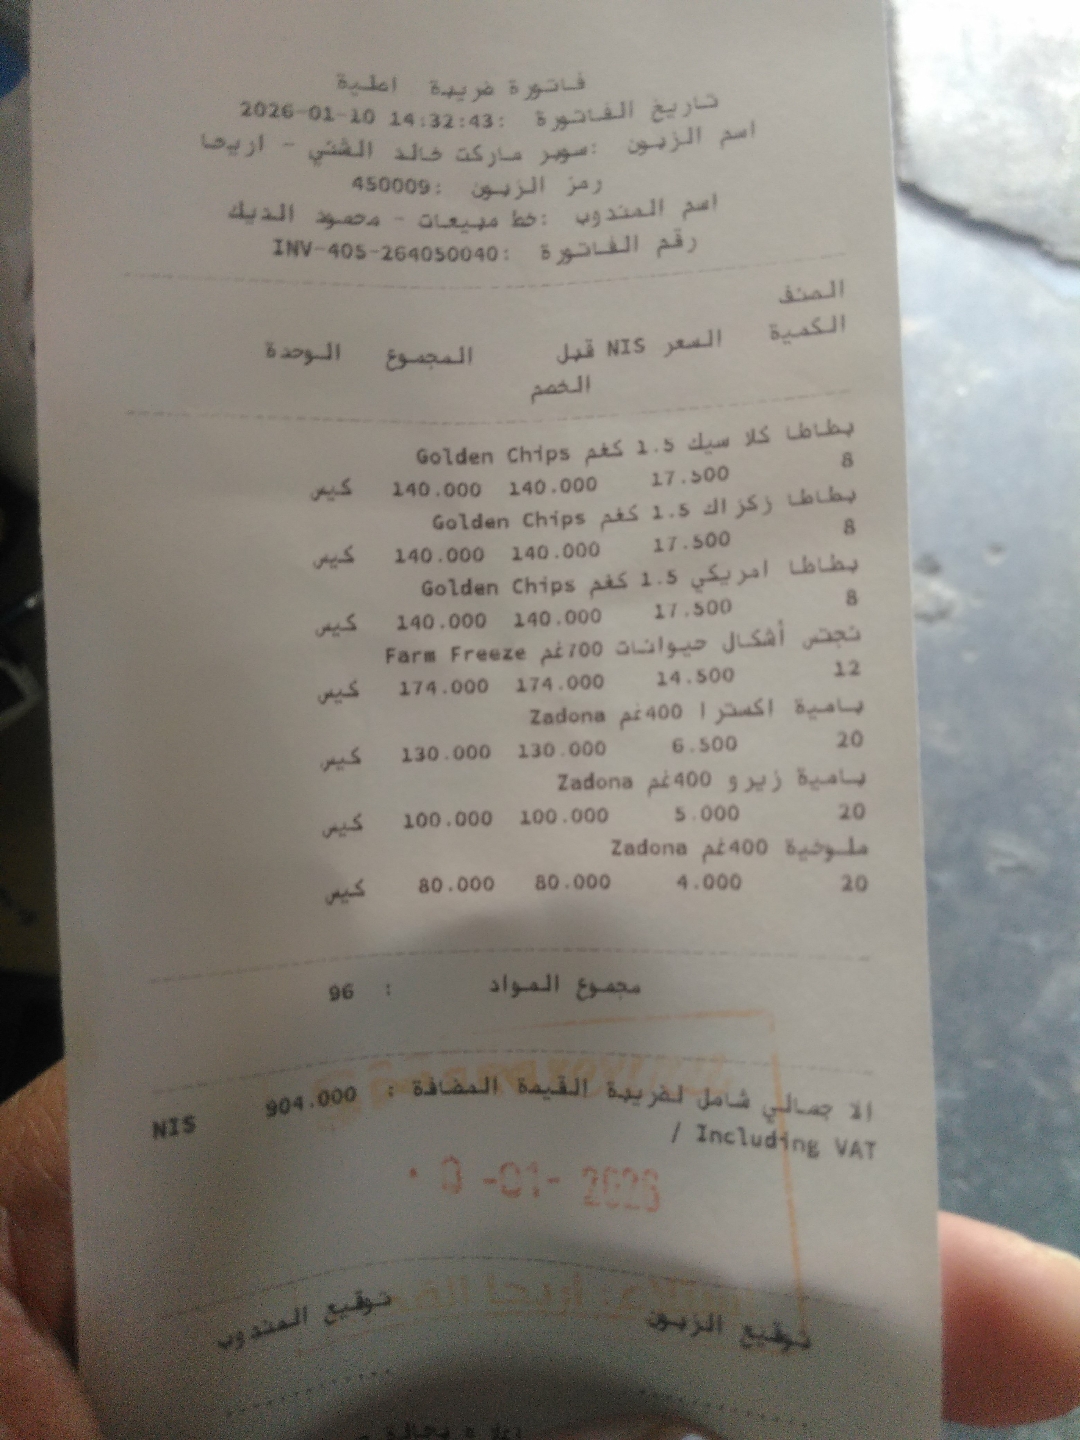 فاتورة ضريبة اصلية
تاريخ الفاتورة :2026-01-10 14:32:43
اسم الزبون :سوبر ماركت خالد الشني - اريحا
رمز الزبون :450009
اسم المندوب :خط مبيعات - محمود الديك
رقم الفاتورة :INV-405-264050040
الصنف
الكمية السعر NIS قبل المجموع الوحدة
الخصم
بطاطا كلا سيك 1.5 كغم Golden Chips
8 17.500 140.000 140.000 كيس
بطاطا زكزاك 1.5 كغم Golden Chips
8 17.500 140.000 140.000 كيس
بطاطا امريكي 1.5 كغم Golden Chips
8 17.500 140.000 140.000 كيس
نجتس أشكال حيوانات 700غم Farm Freeze
12 14.500 174.000 174.000 كيس
بامية اكسترا 400غم Zadona
20 6.500 130.000 130.000 كيس
بامية زيرو 400غم Zadona
20 5.000 100.000 100.000 كيس
ملوخية 400غم Zadona
20 4.000 80.000 80.000 كيس
مجموع المواد : 96
الا جمالي شامل لضريبة القيمة المضافة : 904.000 NIS
/ Including VAT
-01- 2026
توقيع الزبون توقيع المندوب